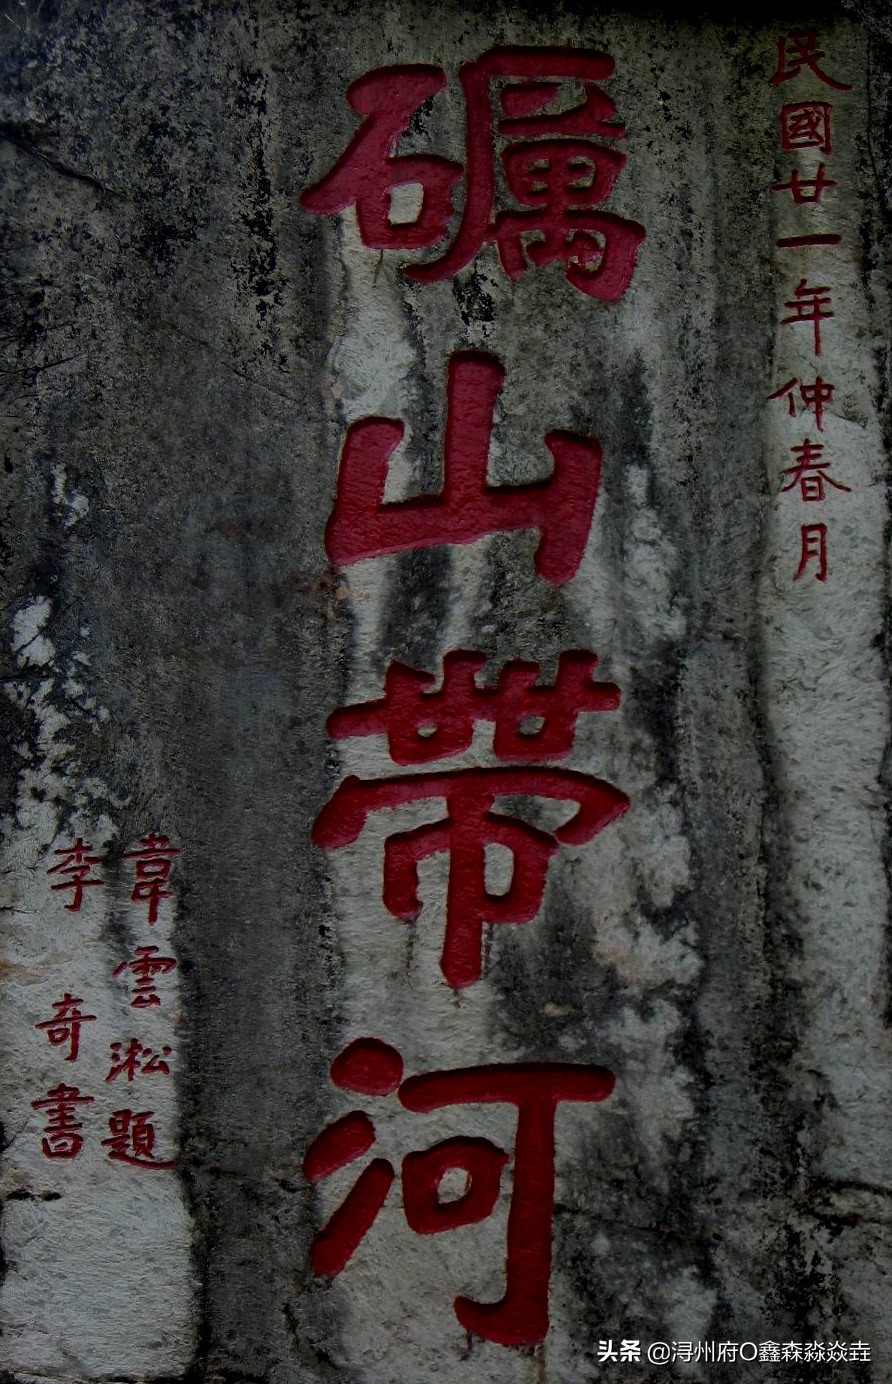 民國廿一年仲春月
礪山帶河
韋雲淞題
李奇書
头条 @浔州府O鑫森淼焱垚